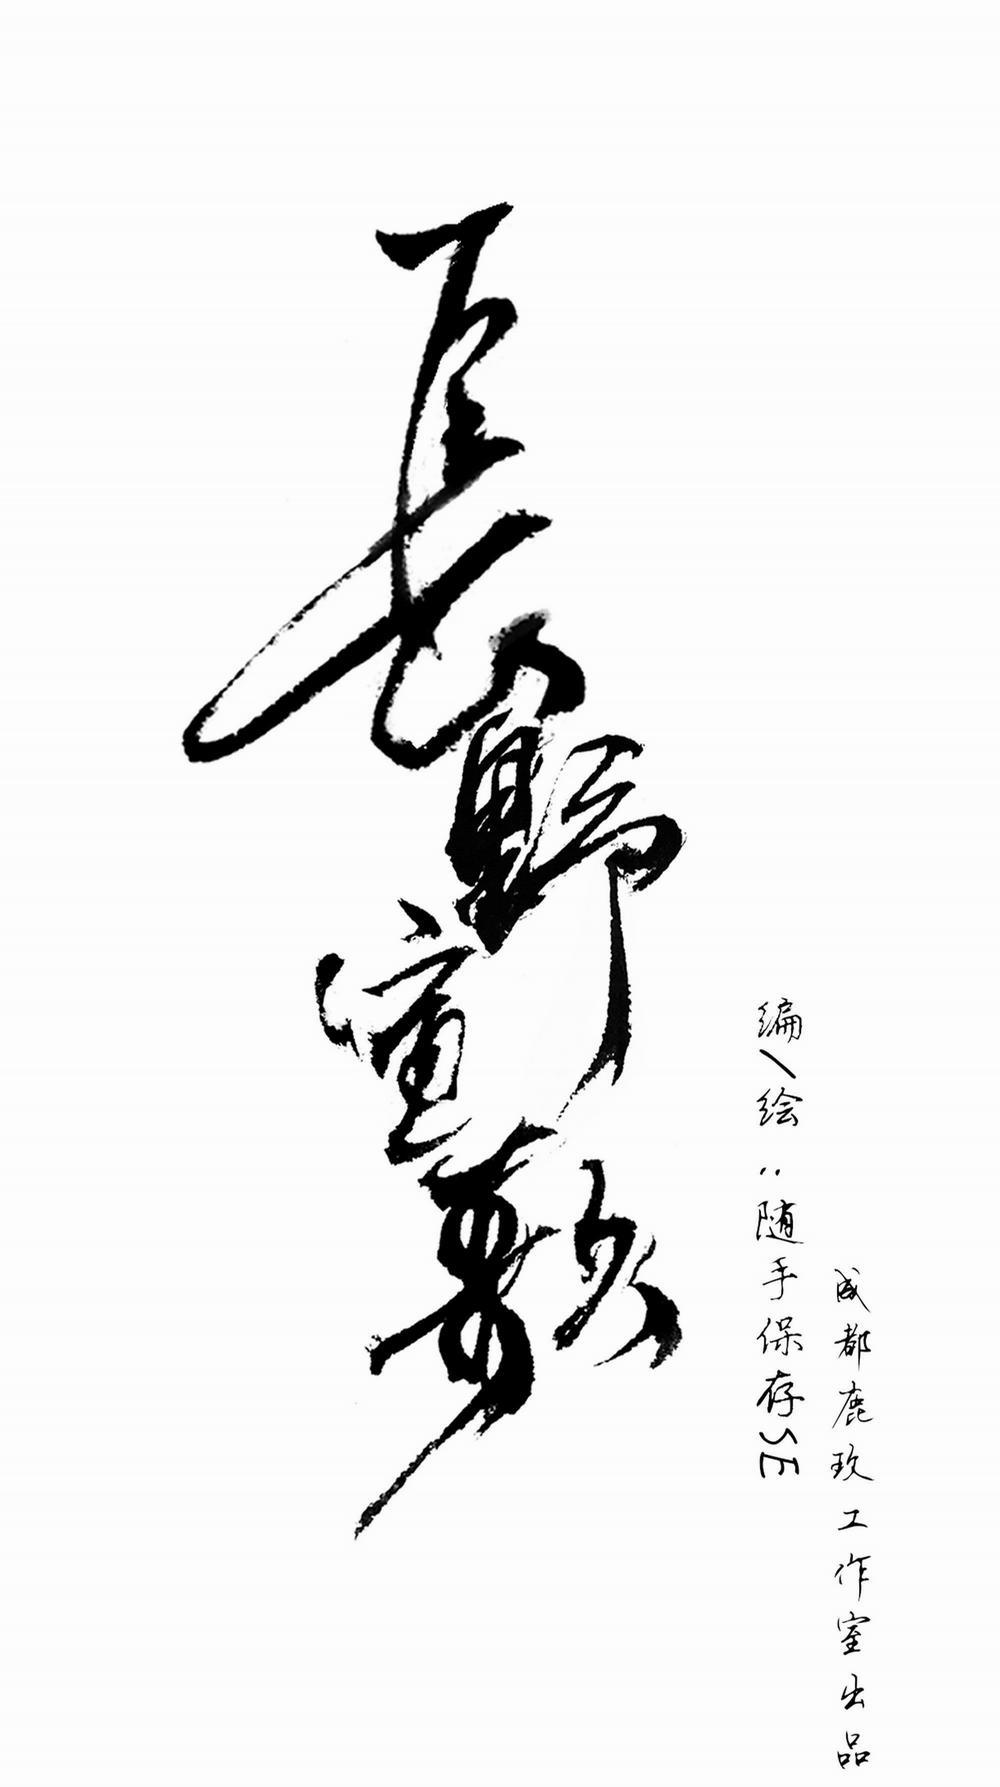 長野宣敷
编/绘：随手保存SE
成都鹿玖工作室出品